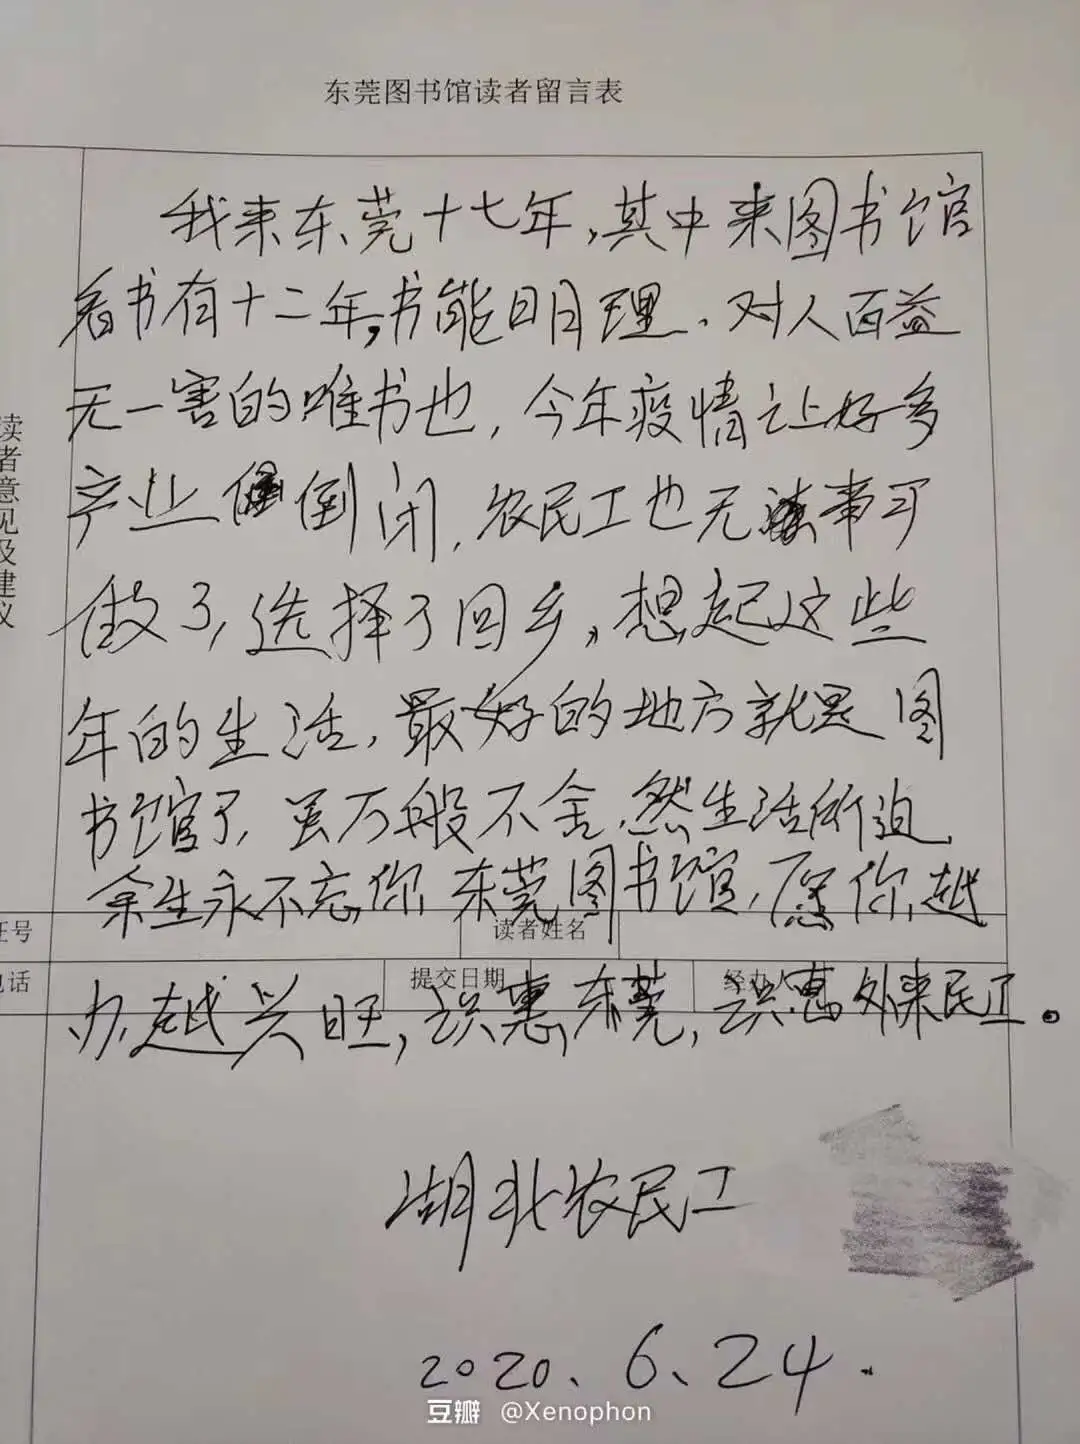 东莞图书馆读者留言表
读者意见及建议
我来东莞十七年,其中来图书馆
看书有十二年,书能明理、对人百益
无一害的唯书也,今年疫情让好多
产业倒闭,农民工也无事可
做了,选择了回乡,想起这些
年的生活,最好的地方就是图
书馆了,虽万般不舍,然生活所迫
余生永不忘你,东莞图书馆,愿你越
办越兴旺,识惠东莞,识惠外来民工。
证号
读者姓名
电话
提交日期
经办人
湖北农民工
2020、6、24.
豆瓣 @Xenophon